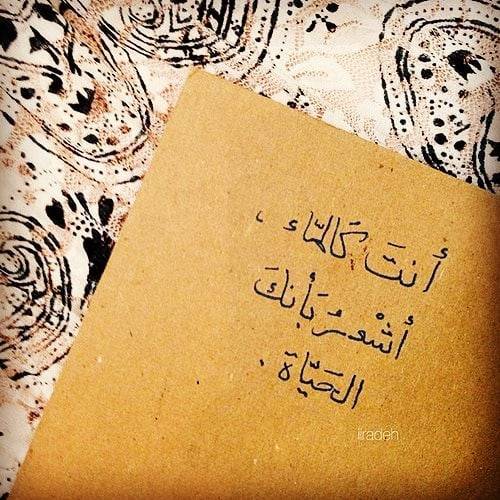 أنتَ كَالمَاء ،
أشْعرُ بَأنكَ
الحَيَاة .
iiradeh